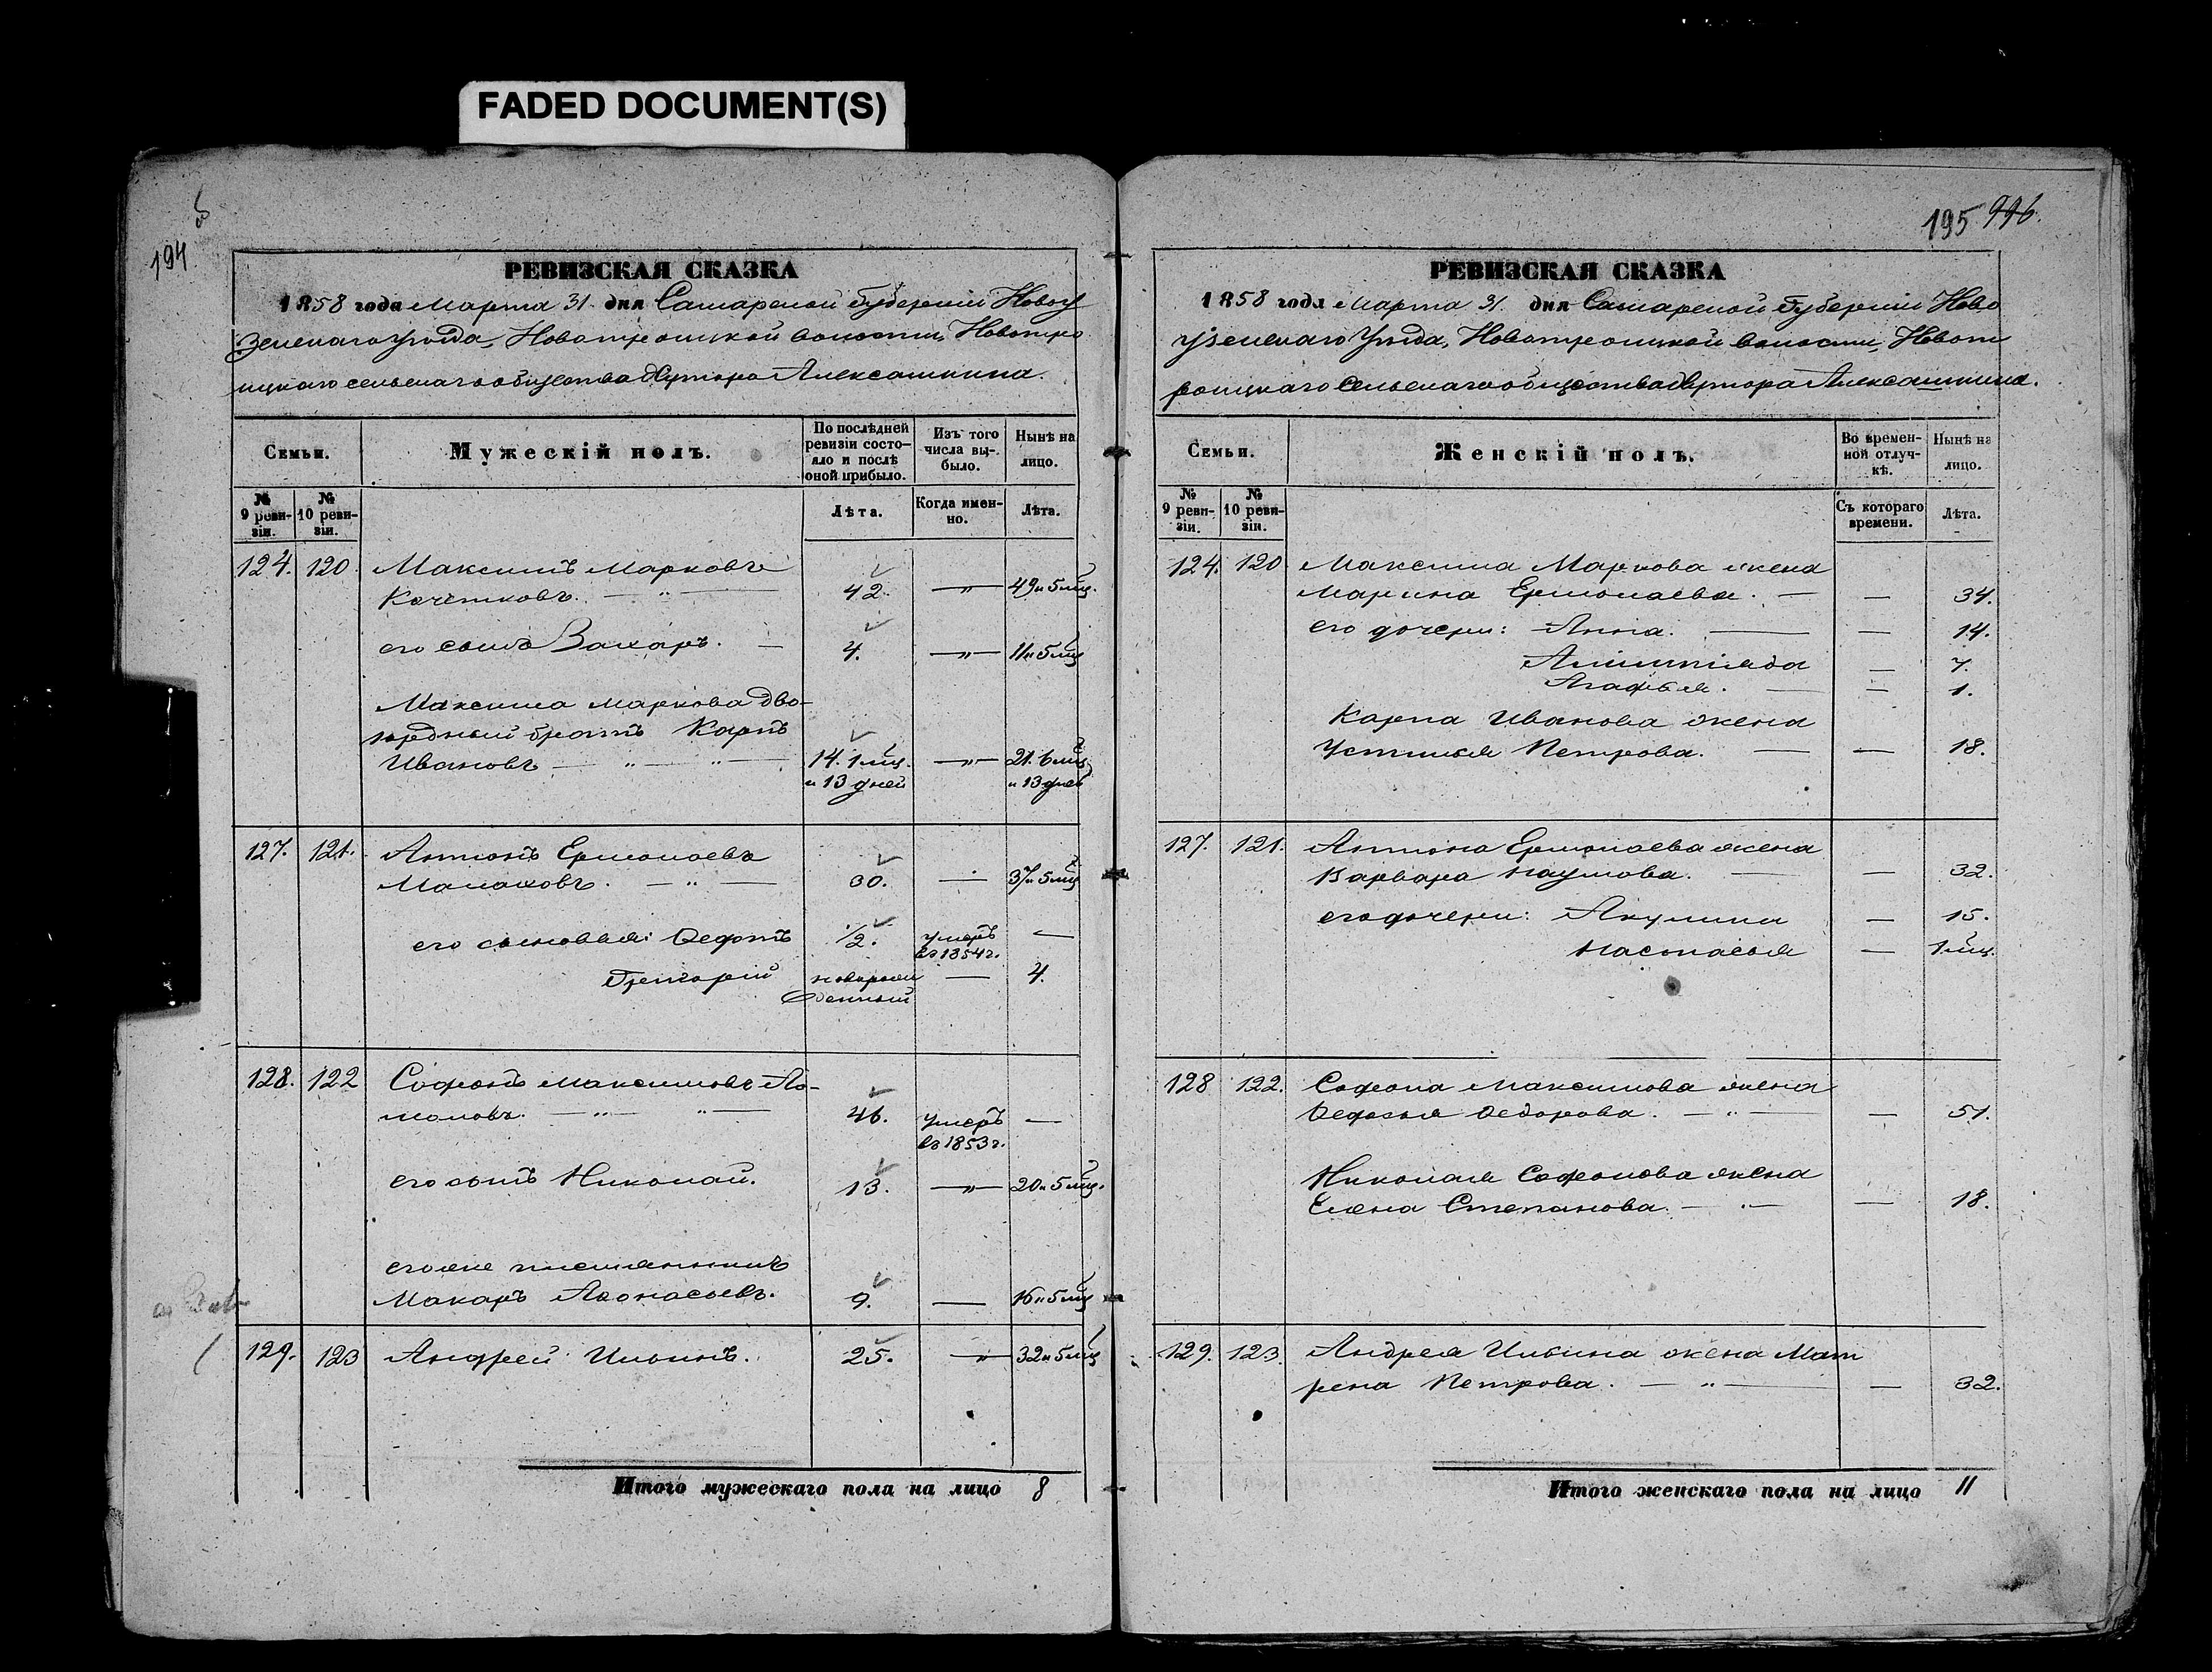 FADED DOCUMENT(S)
194.
РЕВИЗСКАЯ СКАЗКА
1858 года Марта 31 дня Самарской Губернии Новоу
зенскаго Уѣзда, Новотроицкой волости, Новотро
ицкаго сельскаго общества Хутора Алексашкина.
Семьи.
Мужескій полъ.
По послѣдней ревизіи состояло и послѣ оной прибыло.
Изъ того числа выбыло.
Нынѣ на лицо.
№ 9 ревизіи.
№ 10 ревизіи.
Лѣта.
Когда именно.
Лѣта.
124. 120. Максимъ Марковъ
Кочетковъ. — „ — 42. — „ — 49 и 5 мц.
его сынъ Захаръ. — 4. — „ — 11 и 5 мц
Максима Маркова дво-
юрдный братъ Карпъ
Ивановъ — „ — „ — 14. 1 мц. — „ — 21. 6 мц
и 13 дней и 13 дней
127. 121. Антонъ Ермолаевъ
Малаховъ. — „ — 30. — 37 и 5 мц
его сыновья: Федотъ 1/2. умеръ —
въ 1854 г.
Григорій новорож — 4.
денный
128. 122 Софонъ Максимовъ Ло-
мовъ. — „ — „ — 46. умеръ —
въ 1853 г.
его сынъ Николай. 13. — „ — 20 и 5 мц.
его же племянникъ
Макаръ Афонасьевъ. 9. — 16 и 5 мц
129. 123 Андрей Ильинъ. 25. — „ 32 и 5 мц
Итого мужескаго пола на лицо 8
195 996.
РЕВИЗСКАЯ СКАЗКА
1858 года Марта 31. дня Самарской Губерніи Ново
узенскаго Уѣзда, Новотроицкой волости, Новот
роицкаго Сельскаго общества Хутора Алексашкина.
Семьи.
Женскій полъ.
Во временной отлучкѣ.
Нынѣ на лицо.
№ 9 ревизіи.
№ 10 ревизіи.
Съ котораго времени.
Лѣта.
124. 120 Максима Маркова жена
Марина Ермолаева. — — 34.
его дочери: Анна. — — 14.
Алимпіяда — 7.
Агафья. — — 1.
Карпа Иванова жена
Устинья Петрова. — — 18.
127. 121. Антона Ермолаева жена
Варвара Наумова. — — 32.
его дочери: Акулина — 15.
Настасья — 1 мц.
128 122. Софона Максимова жена
Федосья Федорова. — „ — — 51.
Николая Софонова жена
Елена Степанова. — „ — — 18.
129. 123. Андрея Ильина жена Мат
рена Петрова. — „ — — 32.
Итого женскаго пола на лицо 11